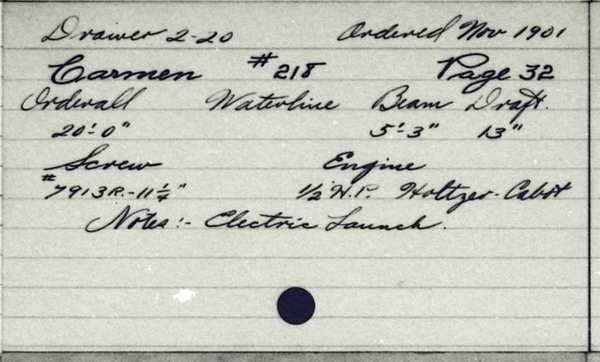 Drawer 2-20 Ordered Nov 1901
Carmen #218 Page 32
Orderall Waterline Beam Draft.
20'-0" 5'-3" 13"
Screw Engine
#7913R.-11¼" ½ H.P. Holtzer-Cabot
Notes:- Electric Launch.